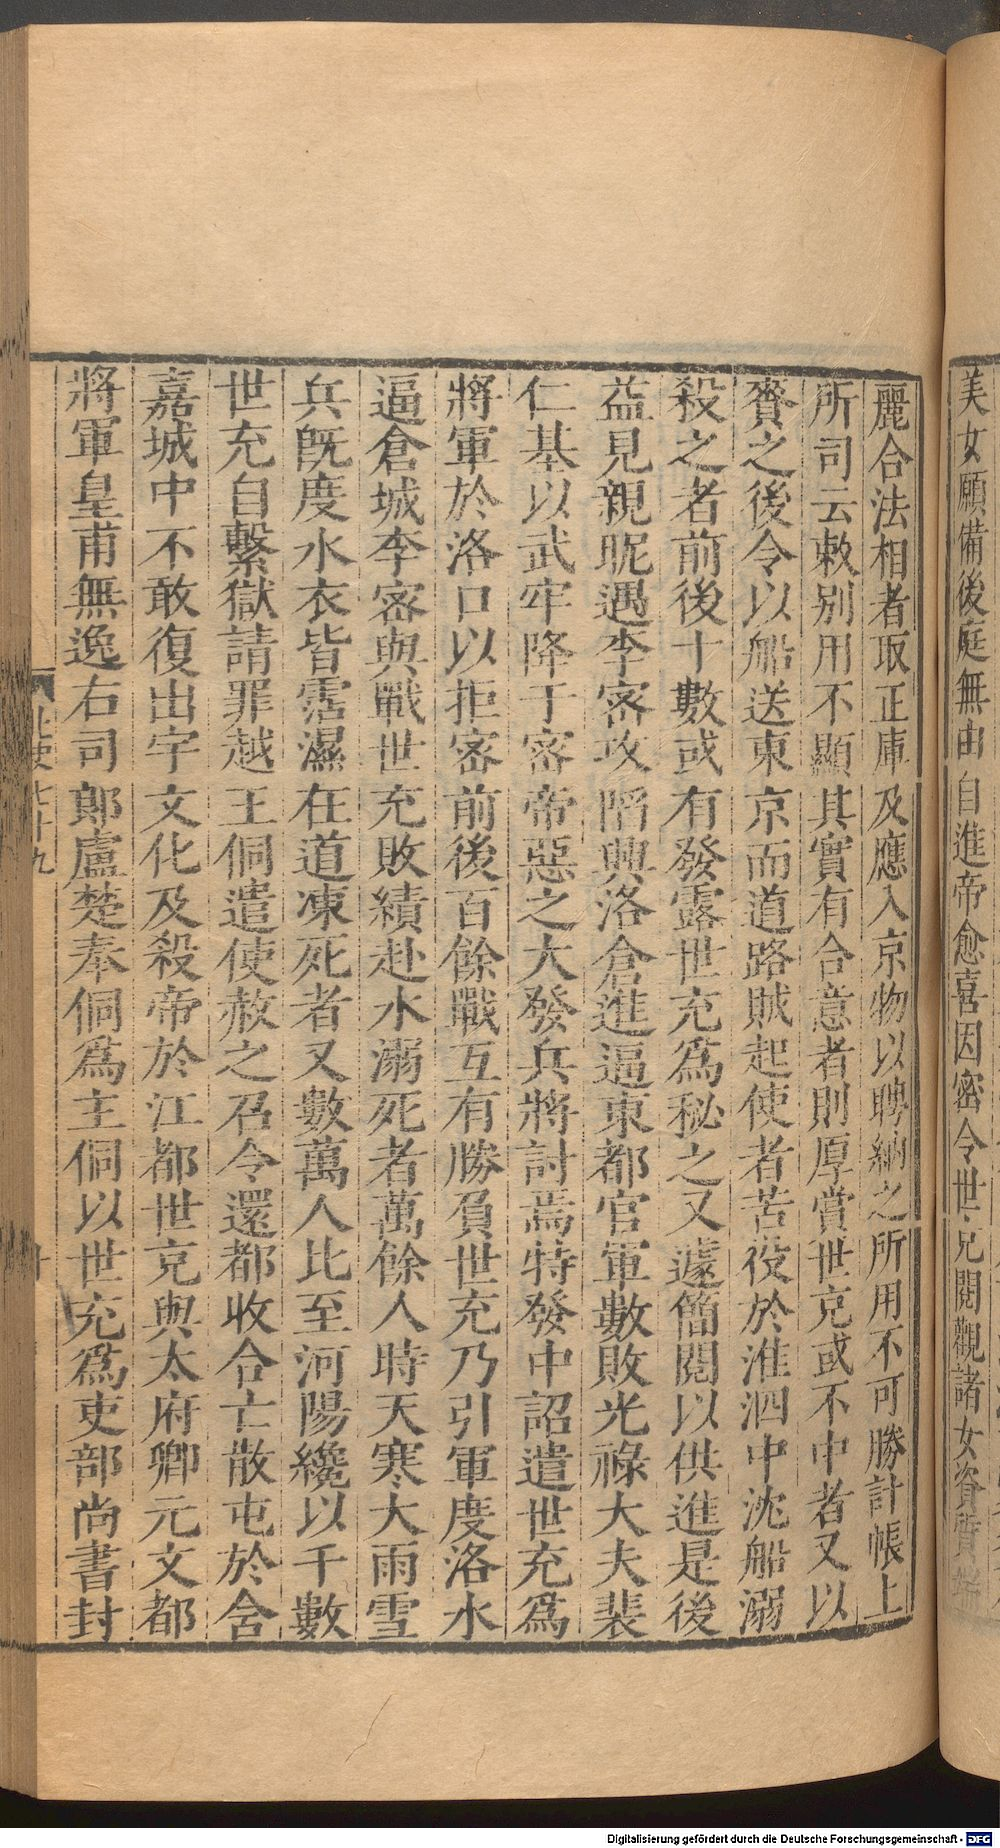 美女願備後庭無由自進帝愈喜因密令世充閱觀諸女資質端
麗合法相者取正庫及應入京物以聘納之所用不可勝計帳上
所司云敕別用不顯其實有合意者則厚賞世充或不中者又以
賚之後令以船送東京而道路賊起使者苦役於淮泗中沈船溺
殺之者前後十數或有發露世充爲秘之又遽簡閱以供進是後
益見親昵遇李密攻陷興洛倉進逼東都官軍數敗光祿大夫裴
仁基以武牢降于密帝惡之大發兵將討焉特發中詔遣世充爲
將軍於洛口以拒密前後百餘戰互有勝負世充乃引軍度洛水
逼倉城李密與戰世充敗績赴水溺死者萬餘人時天寒大雨雪
兵旣度水衣皆霑濕在道凍死者又數萬人比至河陽纔以千數
世充自繫獄請罪越王侗遣使赦之召令還都收合亡散屯於含
嘉城中不敢復出宇文化及殺帝於江都世充與太府卿元文都
將軍皇甫無逸右司郎盧楚奉侗爲主侗以世充爲吏部尚書封
北史七十九
十
Digitalisierung gefördert durch die Deutsche Forschungsgemeinschaft - DFG